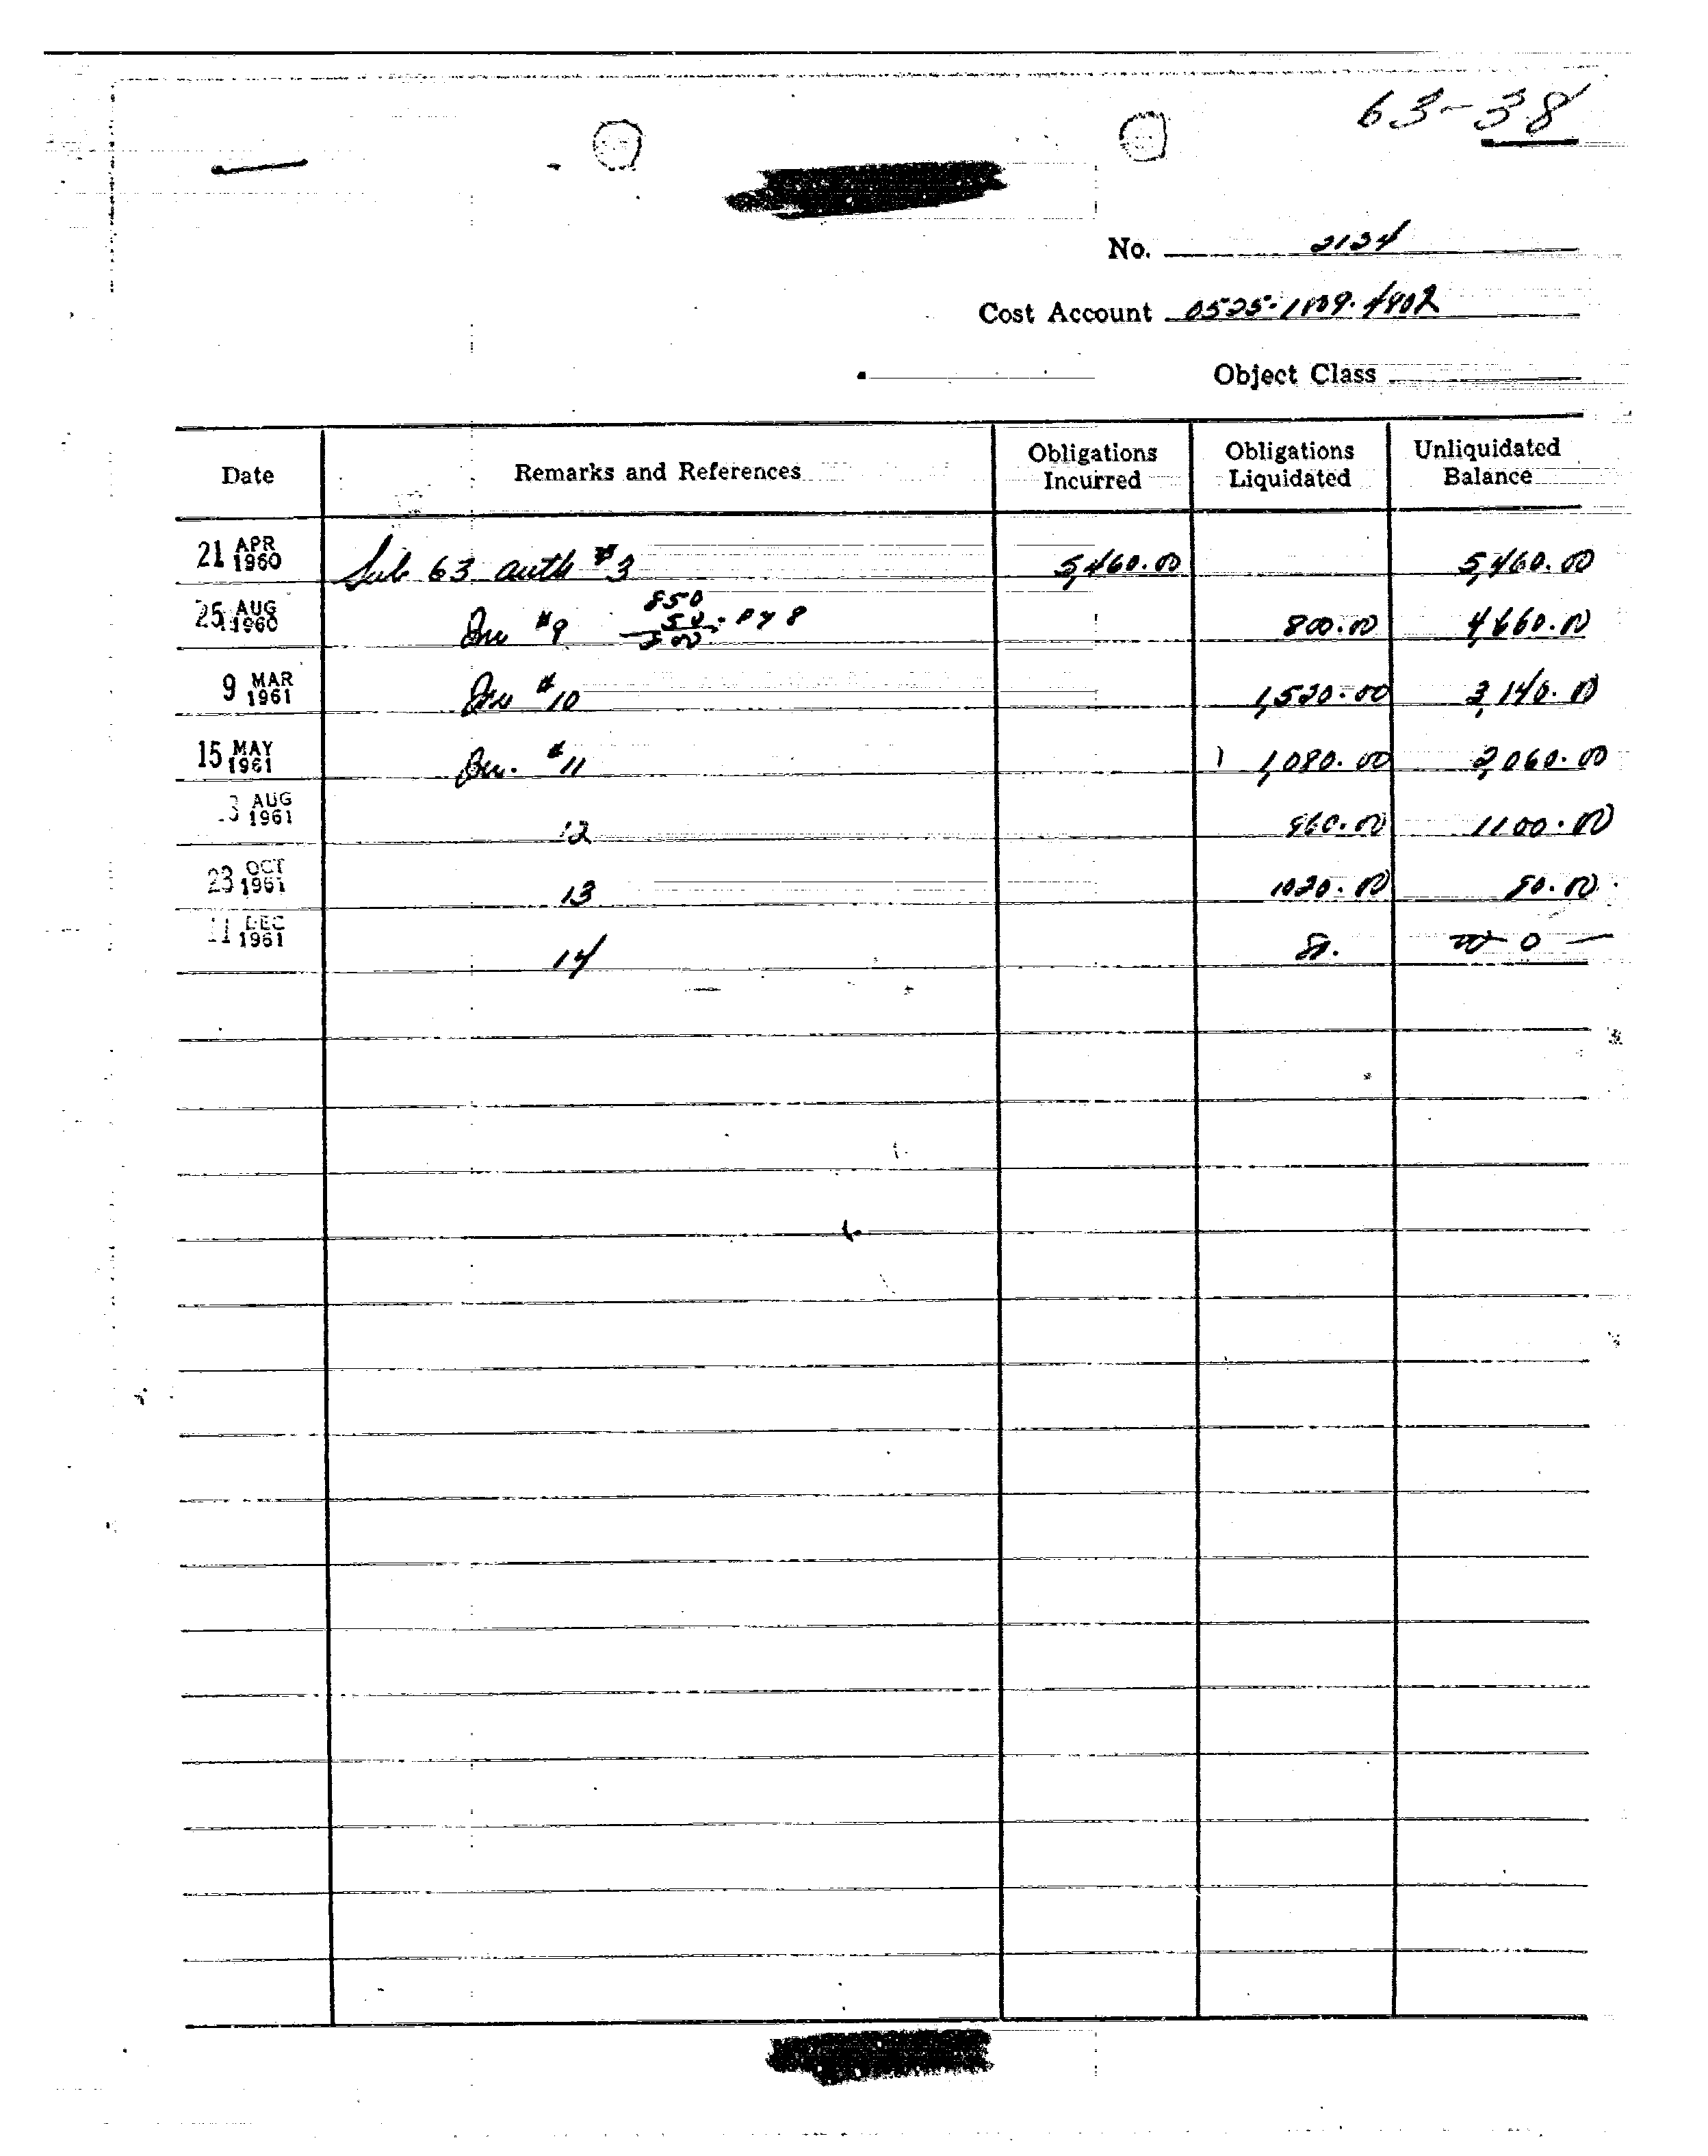 63-38
No. 2134
Cost Account 0525-1009-4902
Object Class
Date Remarks and References Obligations Incurred Obligations Liquidated Unliquidated Balance
21 APR 1960 Sub 63 auth #3 5,460.00 5,460.00
850
25 AUG 1960 Inv #9 50 800.00 4,660.00
9 MAR 1961 Inv #10 1,520.00 3,140.00
15 MAY 1961 Inv. #11 1,080.00 2,060.00
3 AUG 1961 12 960.00 1100.00
23 OCT 1961 13 1020.00 80.00
11 DEC 1961 14 80. 0 —